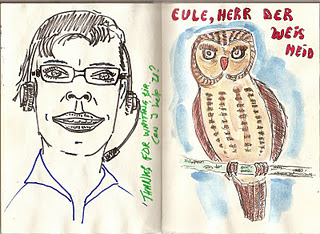 'THANKS FOR WAITING SIR
CAN I help U?
EULE, HERR DER
WEIS
HEID